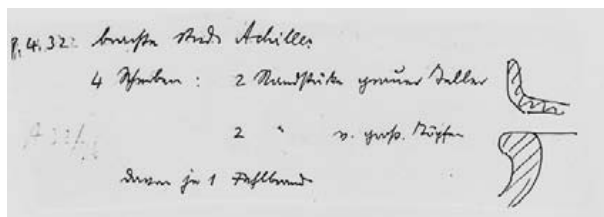 8.4.32 brachte stud. Achilles
4 Scherben : 2 Randstücke grauer Teller
2 " v. groß. Töpfen
davon je 1 Fehlbrand